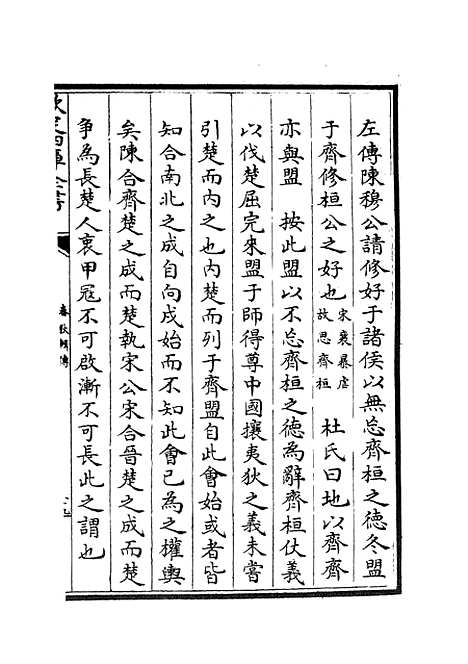 左傳陳穆公請修好于諸侯以無忘齊桓之德冬盟
于齊修桓公之好也宋襄暴虐故思齊桓 杜氏曰地以齊齊
亦與盟 按此盟以不忘齊桓之德為辭齊桓仗義
以伐楚屈完來盟于師得尊中國攘夷狄之義未嘗
引楚而內之也內楚而列于齊盟自此會始或者皆
知合南北之成自向戌始而不知此會已為之權輿
矣陳合齊楚之成而楚執宋公宋合晉楚之成而楚
争為長楚人衷甲冦不可啟漸不可長此之謂也
欽定四庫全書
春秋輯傳